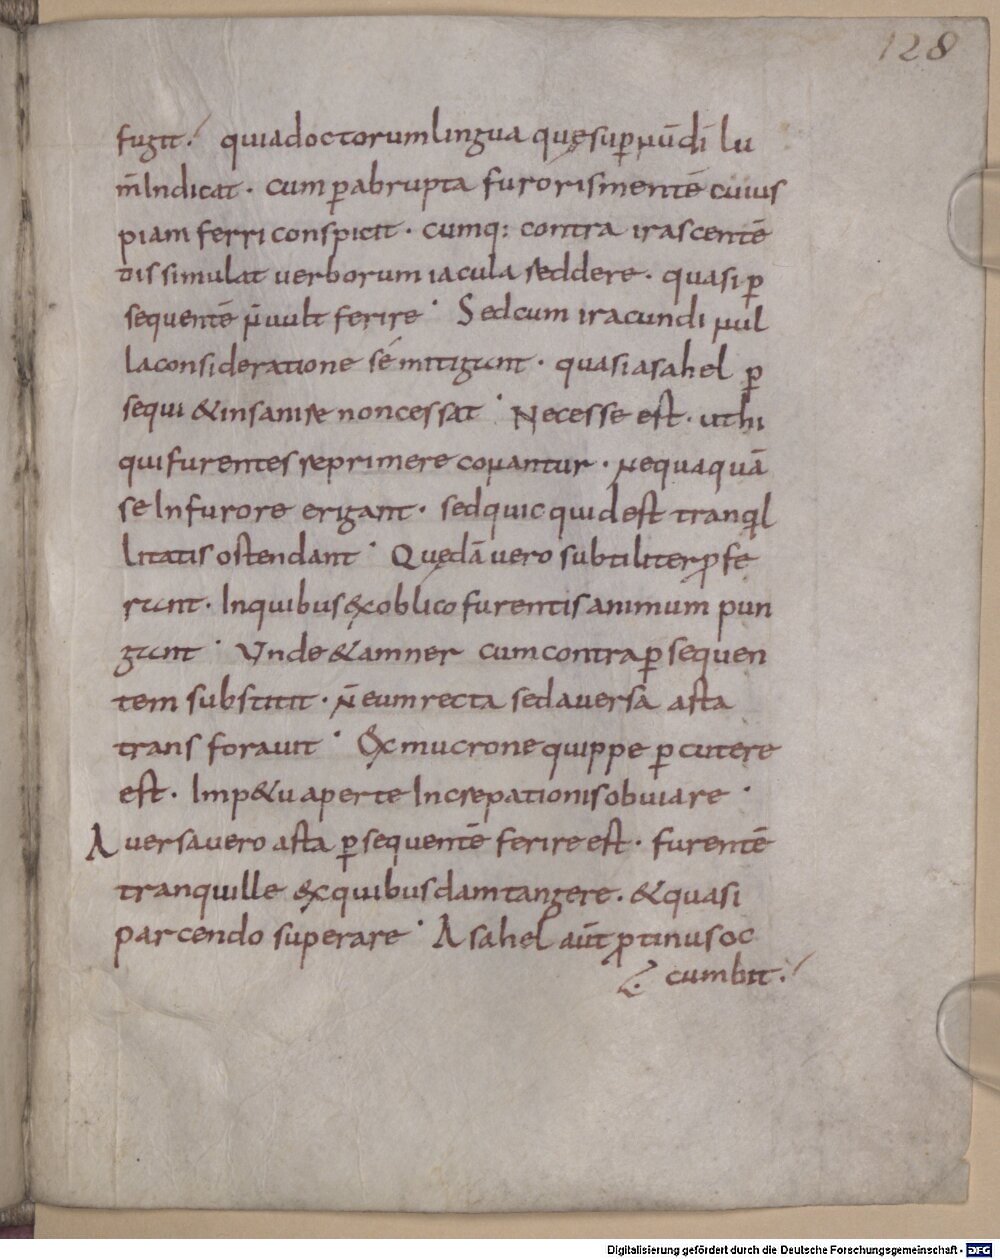 128
fugit؛ quia doctorum lingua quę sup̱ mūdi lu
m̄ indicat· cum p̱ abrupta furoris mentē cuius
piam ferri conspicit· cumq: contra irascentē
dissimulat verborum iacula reddere· quasi p̱
sequentē n̄ uult ferire· Sed cum iracundi nul
la consideratione sé mitigunt· quasi asahel p̱
sequi & insanire non cessat· Necesse est· ut hi
qui furentes reprimere conantur· nequaquā
se In furore erigant· sed quicquid est tranquil
litatis ostendant· Quędā vero subtiliter ꝓfe
runt· In quibus ex oblico furentis animum pun
gunt· Vnde & amner cum contra p̱sequen
tem substitit· n̄ eum recta sed aversa asta
transforauit· Ex mucrone quippe p̱cutere
est· Imp&u aperte Increpationis obuiare·
Aversa vero asta p̱sequentē ferire est· furentē
tranquille ex quibusdam tangere· & quasi
parcendo superare· Asahel aūt ꝓtinus oc
cumbit؛
Digitalisierung gefördert durch die Deutsche Forschungsgemeinschaft - DFG